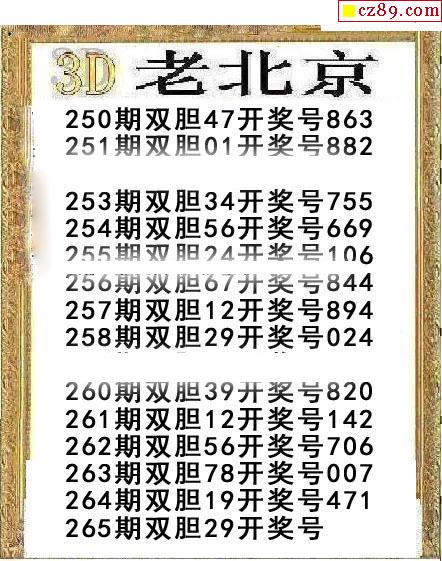 cz89.com
3D 老北京
250期双胆47开奖号863
251期双胆01开奖号882
253期双胆34开奖号755
254期双胆56开奖号669
255期双胆24开奖号106
256期双胆67开奖号844
257期双胆12开奖号894
258期双胆29开奖号024
260期双胆39开奖号820
261期双胆12开奖号142
262期双胆56开奖号706
263期双胆78开奖号007
264期双胆19开奖号471
265期双胆29开奖号